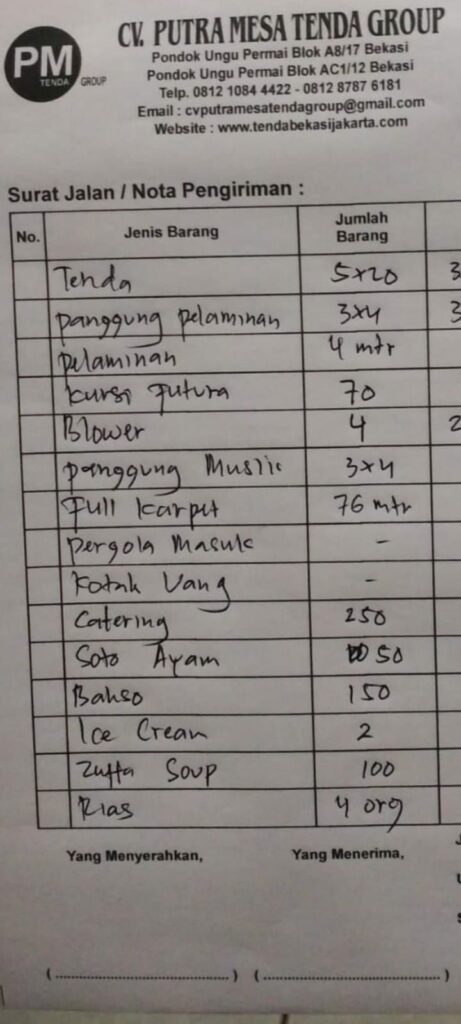 PM
TENDA
GROUP
CV. PUTRA MESA TENDA GROUP
Pondok Ungu Permai Blok A8/17 Bekasi
Pondok Ungu Permai Blok AC1/12 Bekasi
Telp. 0812 1084 4422 - 0812 8787 6181
Email : cvputramesatendagroup@gmail.com
Website : www.tendabekasijakarta.com
Surat Jalan / Nota Pengiriman :
No. Jenis Barang Jumlah Barang
Tenda 5x20 3
panggung pelaminan 3x4 3
pelaminan 4 mtr
kursi Futura 70
Blower 4 2
panggung Musiic 3x4
Full karpet 76 mtr
pergola Masuk -
Kotak Uang -
Catering 250
Soto Ayam 50
Bakso 150
Ice Cream 2
Zuffa Soup 100
Rias 4 org
Yang Menyerahkan, Yang Menerima,
(..............................) (..............................)